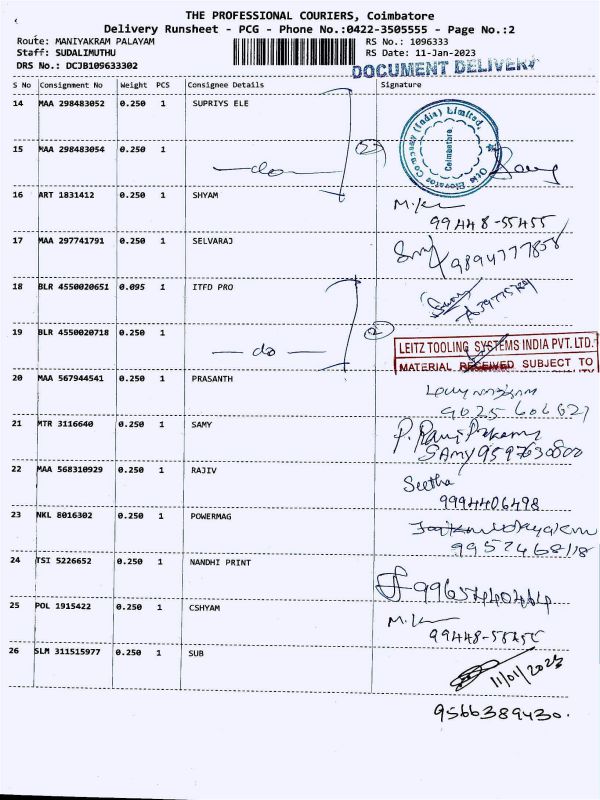 THE PROFESSIONAL COURIERS, Coimbatore
Delivery Runsheet - PCG - Phone No.:0422-3505555 - Page No.:2
Route: MANIYAKRAM PALAYAM RS No.: 1096333
Staff: SUDALIMUTHU RS Date: 11-Jan-2023
DRS No.: DCJB109633302 DOCUMENT DELIVERY
S No Consignment No Weight PCS Consignee Details Signature
14 MAA 298483052 0.250 1 SUPRIYS ELE
Otis Elevator Company (India) Limited,
Coimbatore
15 MAA 298483054 0.250 1
do
16 ART 1831412 0.250 1 SHYAM
99448-55455
17 MAA 297741791 0.250 1 SELVARAJ
9894777858
18 BLR 4550020651 0.095 1 ITFD PRO
19 BLR 4550020718 0.250 1
do 2
LEITZ TOOLING SYSTEMS INDIA PVT. LTD.
MATERIAL RECEIVED SUBJECT TO
20 MAA 567944541 0.250 1 PRASANTH
21 MTR 3116640 0.250 1 SAMY
SAMY 9597630800
22 MAA 568310929 0.250 1 RAJIV
Seetha
9994406498
23 NKL 8016302 0.250 1 POWERMAG
24 TSI 5226652 0.250 1 NANDHI PRINT
25 POL 1915422 0.250 1 CSHYAM
26 SLM 311515977 0.250 1 SUB
11/01/2023
9566389430.